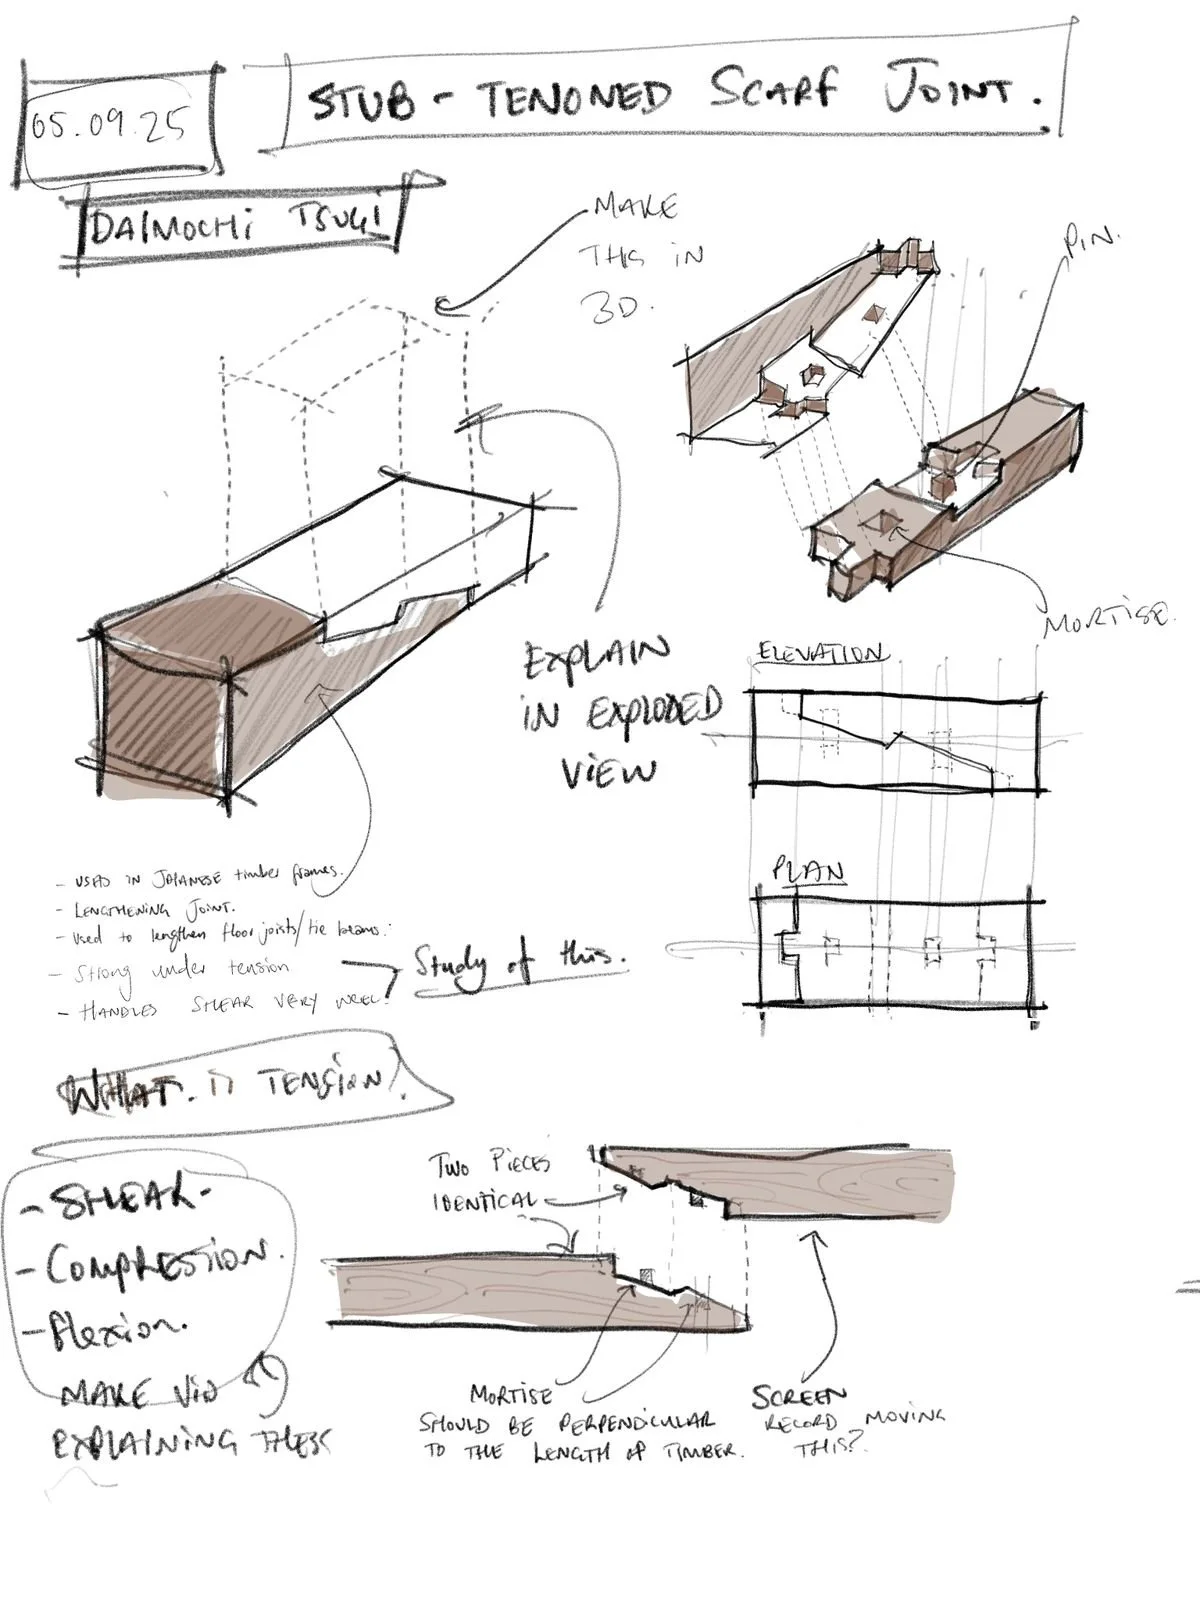 STUB - TENONED SCARF JOINT.
05.09.25
DAIMOCHI TSUGI
MAKE
THIS IN
3D.
PIN.
MORTISE.
EXPLAIN
IN EXPLODED
VIEW
ELEVATION
PLAN
- USED IN JAPANESE timber frames.
- LENGTHENING JOINT.
- Used to lengthen floor joists/tie beams.
- Strong under tension
- HANDLES SHEAR VERY WELL.
Study of this.
WHAT IS TENSION?
- SHEAR-
- COMPRESSION.
- Flexion.
MAKE VID
EXPLAINING THESE
TWO PIECES
IDENTICAL
MORTISE
SHOULD BE PERPENDICULAR
TO THE LENGTH OF TIMBER.
SCREEN
RECORD MOVING
THIS?